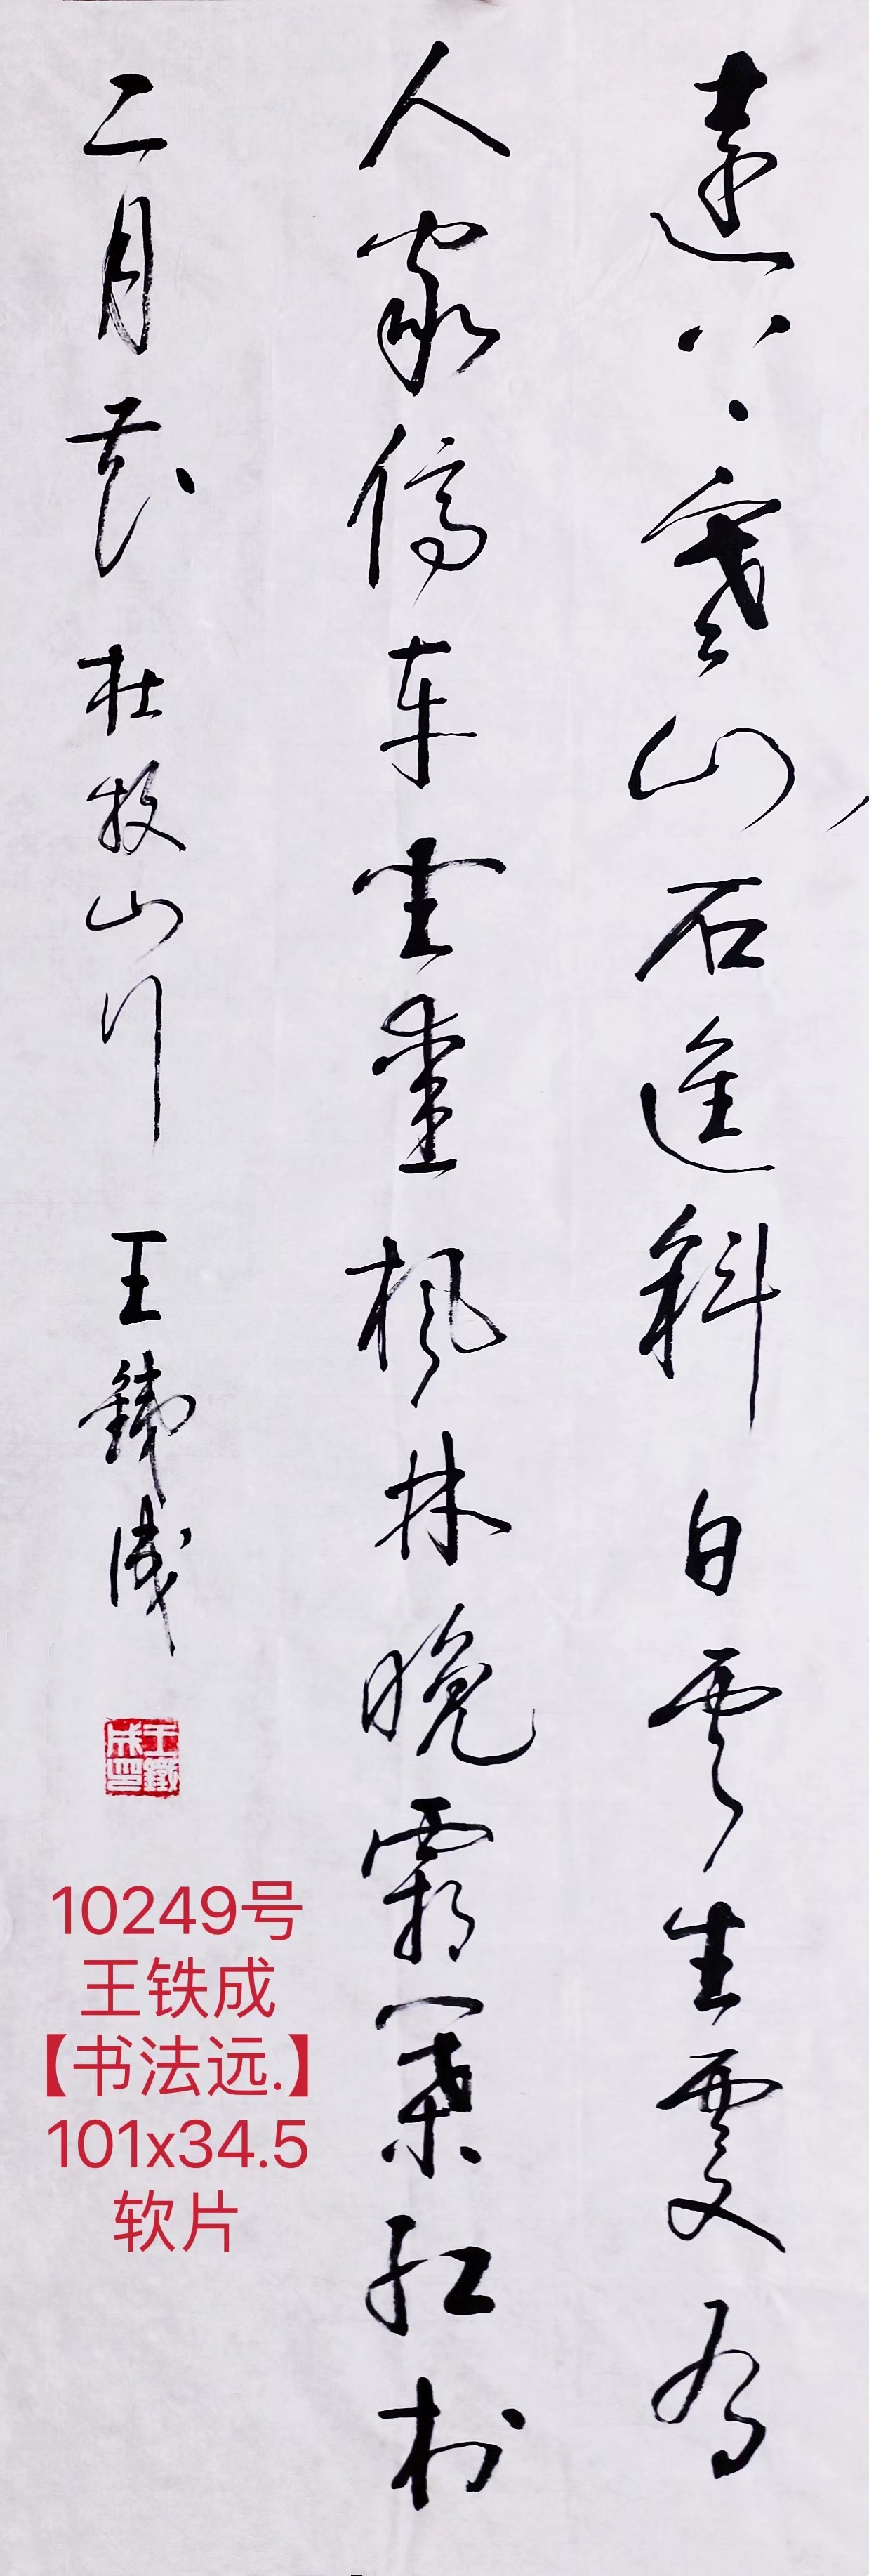 遠上寒山石進斜白雲生處有
人家停車坐愛楓林晚霜葉紅於
二月花 杜牧山行 王鐵成
王鐵成印
10249号
王铁成
【书法远.】
101x34.5
软片